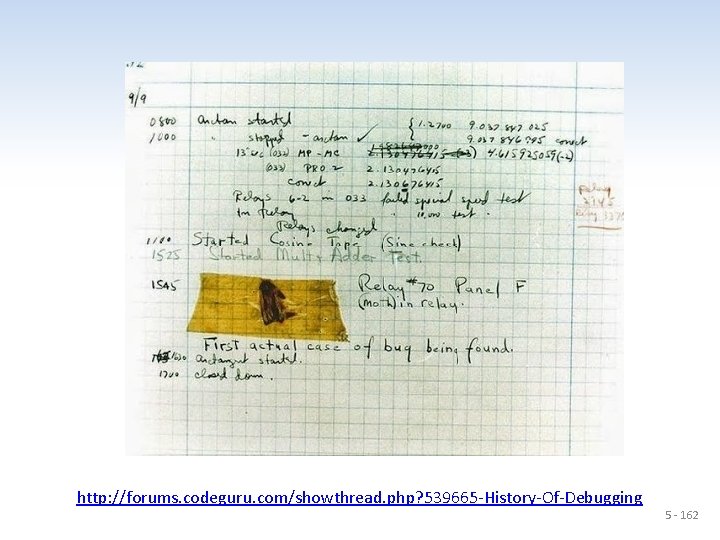 9/9
0800 Antan started
1000 " stopped - antan ✓ { 1.2700 9.037 847 025
9.037 846 995 correct
13"uc (032) MP - MC 2.130476415 (-3) 4.615925059(-2)
(033) PRO 2 2.130476415
correct 2.130676415
Relays 6-2 in 033 failed special speed test
In Relay " 10,000 test.
Relays changed
Relay
2145
Relay 3370
1100 Started Cosine Tape (Sine check)
1525 Started Mult+Adder Test.
1545 Relay #70 Panel F
(moth) in relay.
First actual case of bug being found.
1630 antangent started.
1700 closed down.
http://forums.codeguru.com/showthread.php?539665-History-Of-Debugging
5 - 162